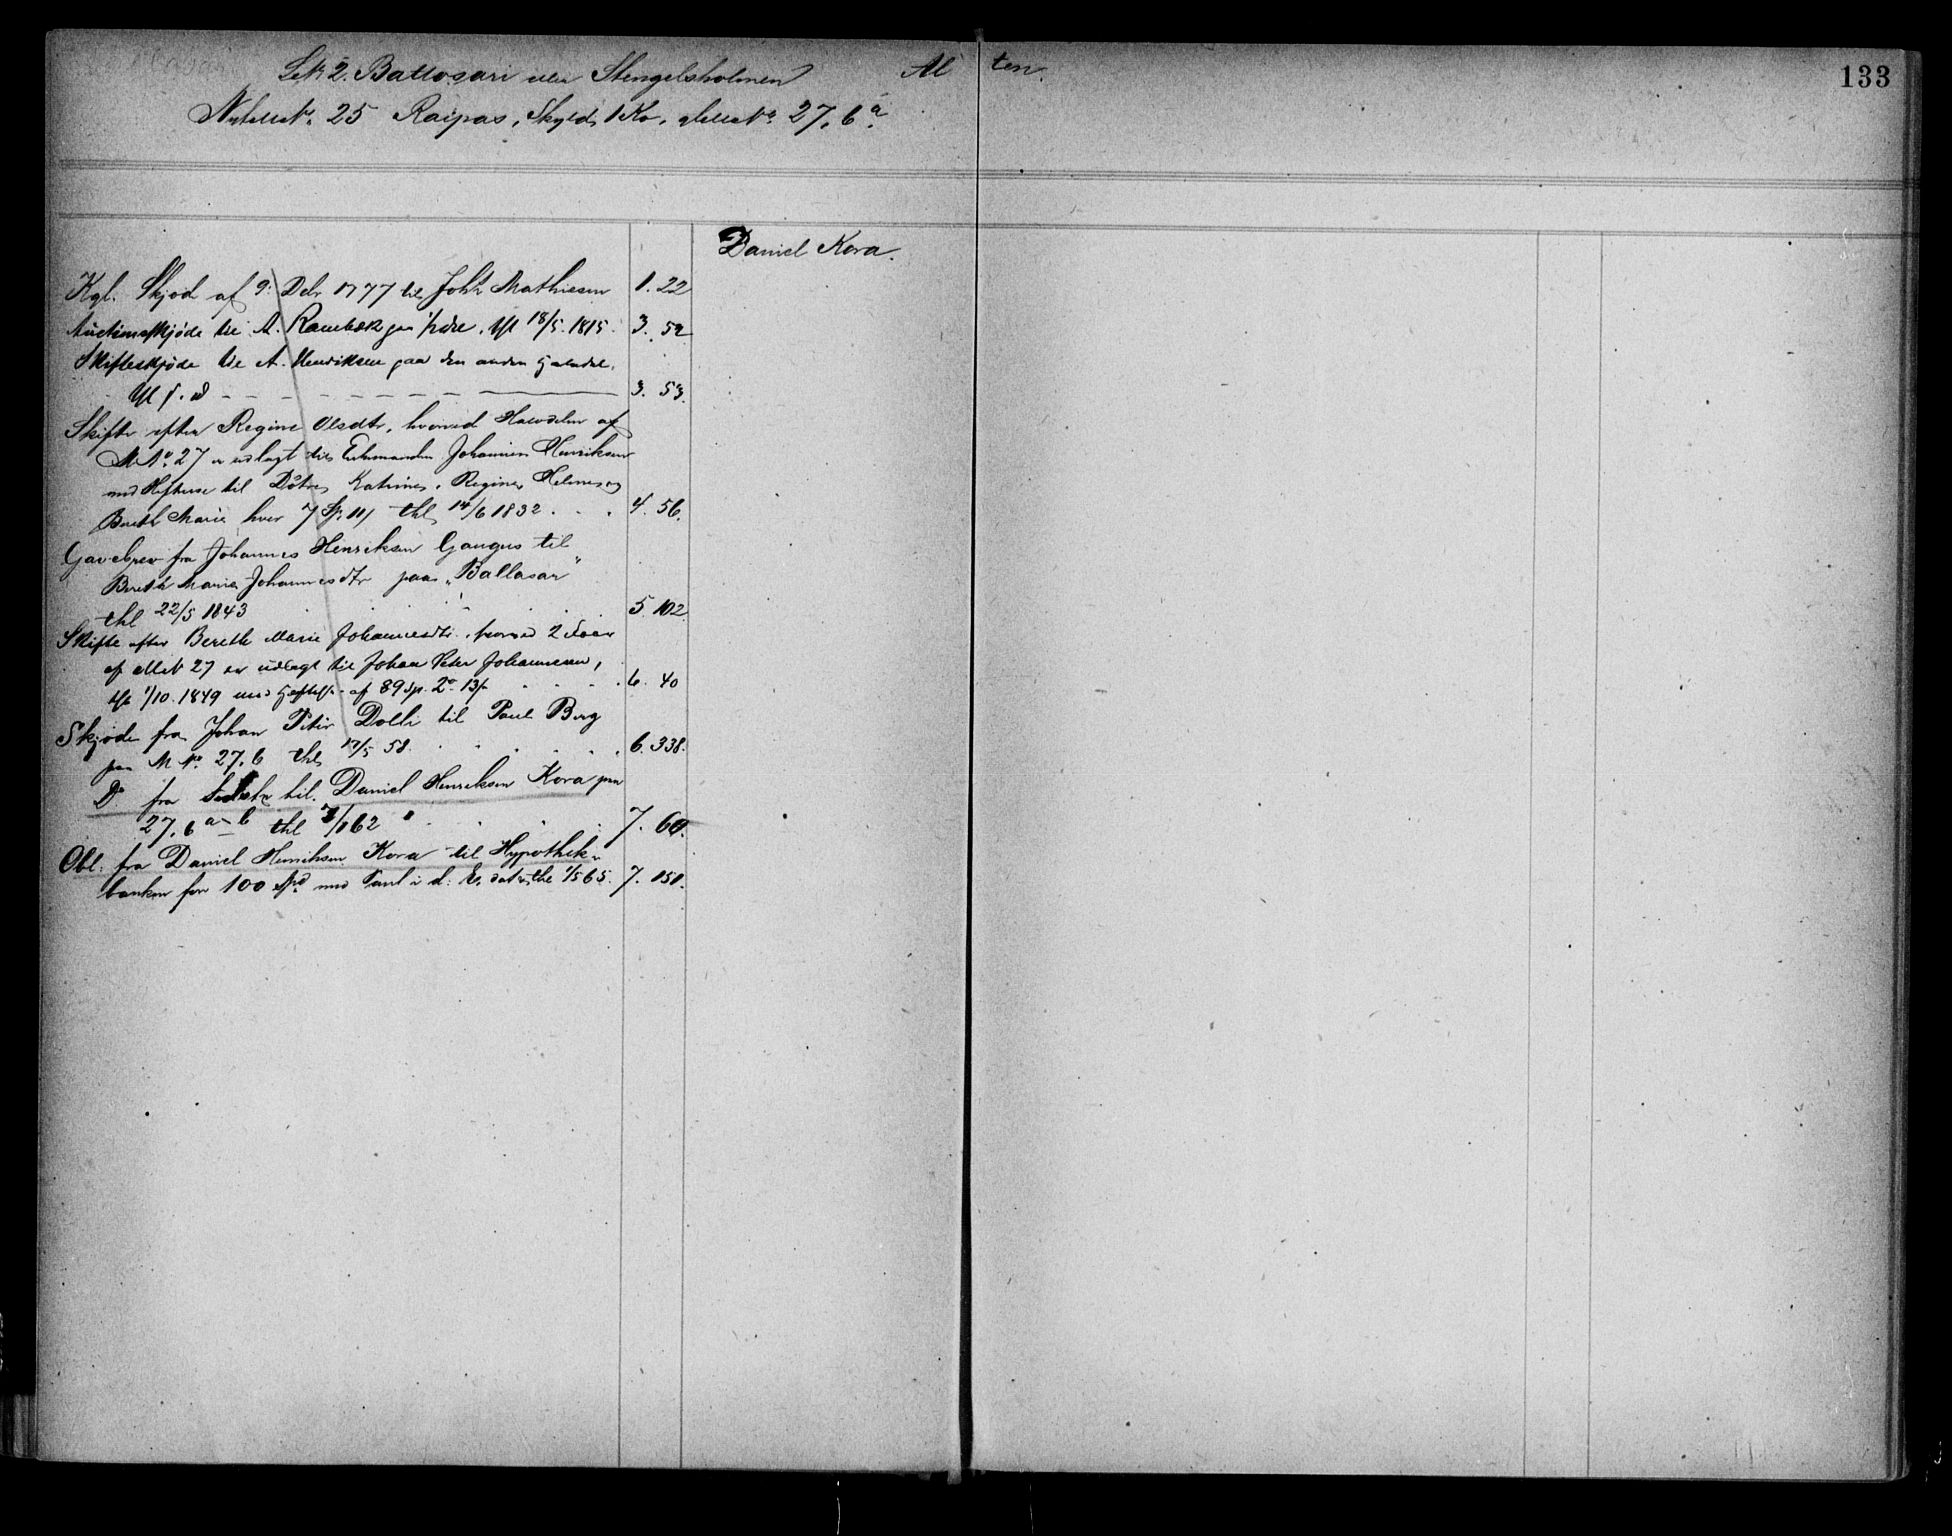 L.N. 2. Battosari eller Stengelsholmen Al ten. 133
No. 25 Raipas, Skyld 1 Ko. No. 27, 6 a.
Daniel Kora.
Kgl. Skjød af 9. Debr 1777 til Joh. Mathiesen 1. 22
Auctionsskjøde til A. Rambæk paa 1/2 tbl 18/5. 1815. 3. 52
Skifteskjøde til A. Henriksen paa den anden Halvdel.
tbl s. d 3. 53.
Skifte efter Regine Olsdtr, hvorved Halvdelen af
M No. 27 er udlagt til Enkemanden Johannes Henriksen
med Heftelse til Døtre Katrine, Regine Helene og
Bereth Marie hver 7 Sp. thl 14/6 1832. 4. 56.
Gavebrev fra Johannes Henriksen Gangus til
Bereth Marie Johannesdtr paa "Ballasar"
thl 22/5 1843 5. 102
Skifte efter Bereth Marie Johannesdtr. hvorved 2
af M No 27 er udlagt til Johan Peter Johannesen,
tbl 1/10. 1849 med Heftelse af 89 Sp. 2 13 6. 40
Skjøde fra Johan Peter Dolli til Paul Berg
paa M No. 27, 6 thl 17/5 58. 6. 338.
Do fra til Daniel Henriksen Kora paa
27, 6 a - b thl /62 7. 60.
Obl. fra Daniel Henriksen Kora til Hypothek-
banken for 100 Spd med Pant i d: E. dat. thl 1/5 65. 7. 151.